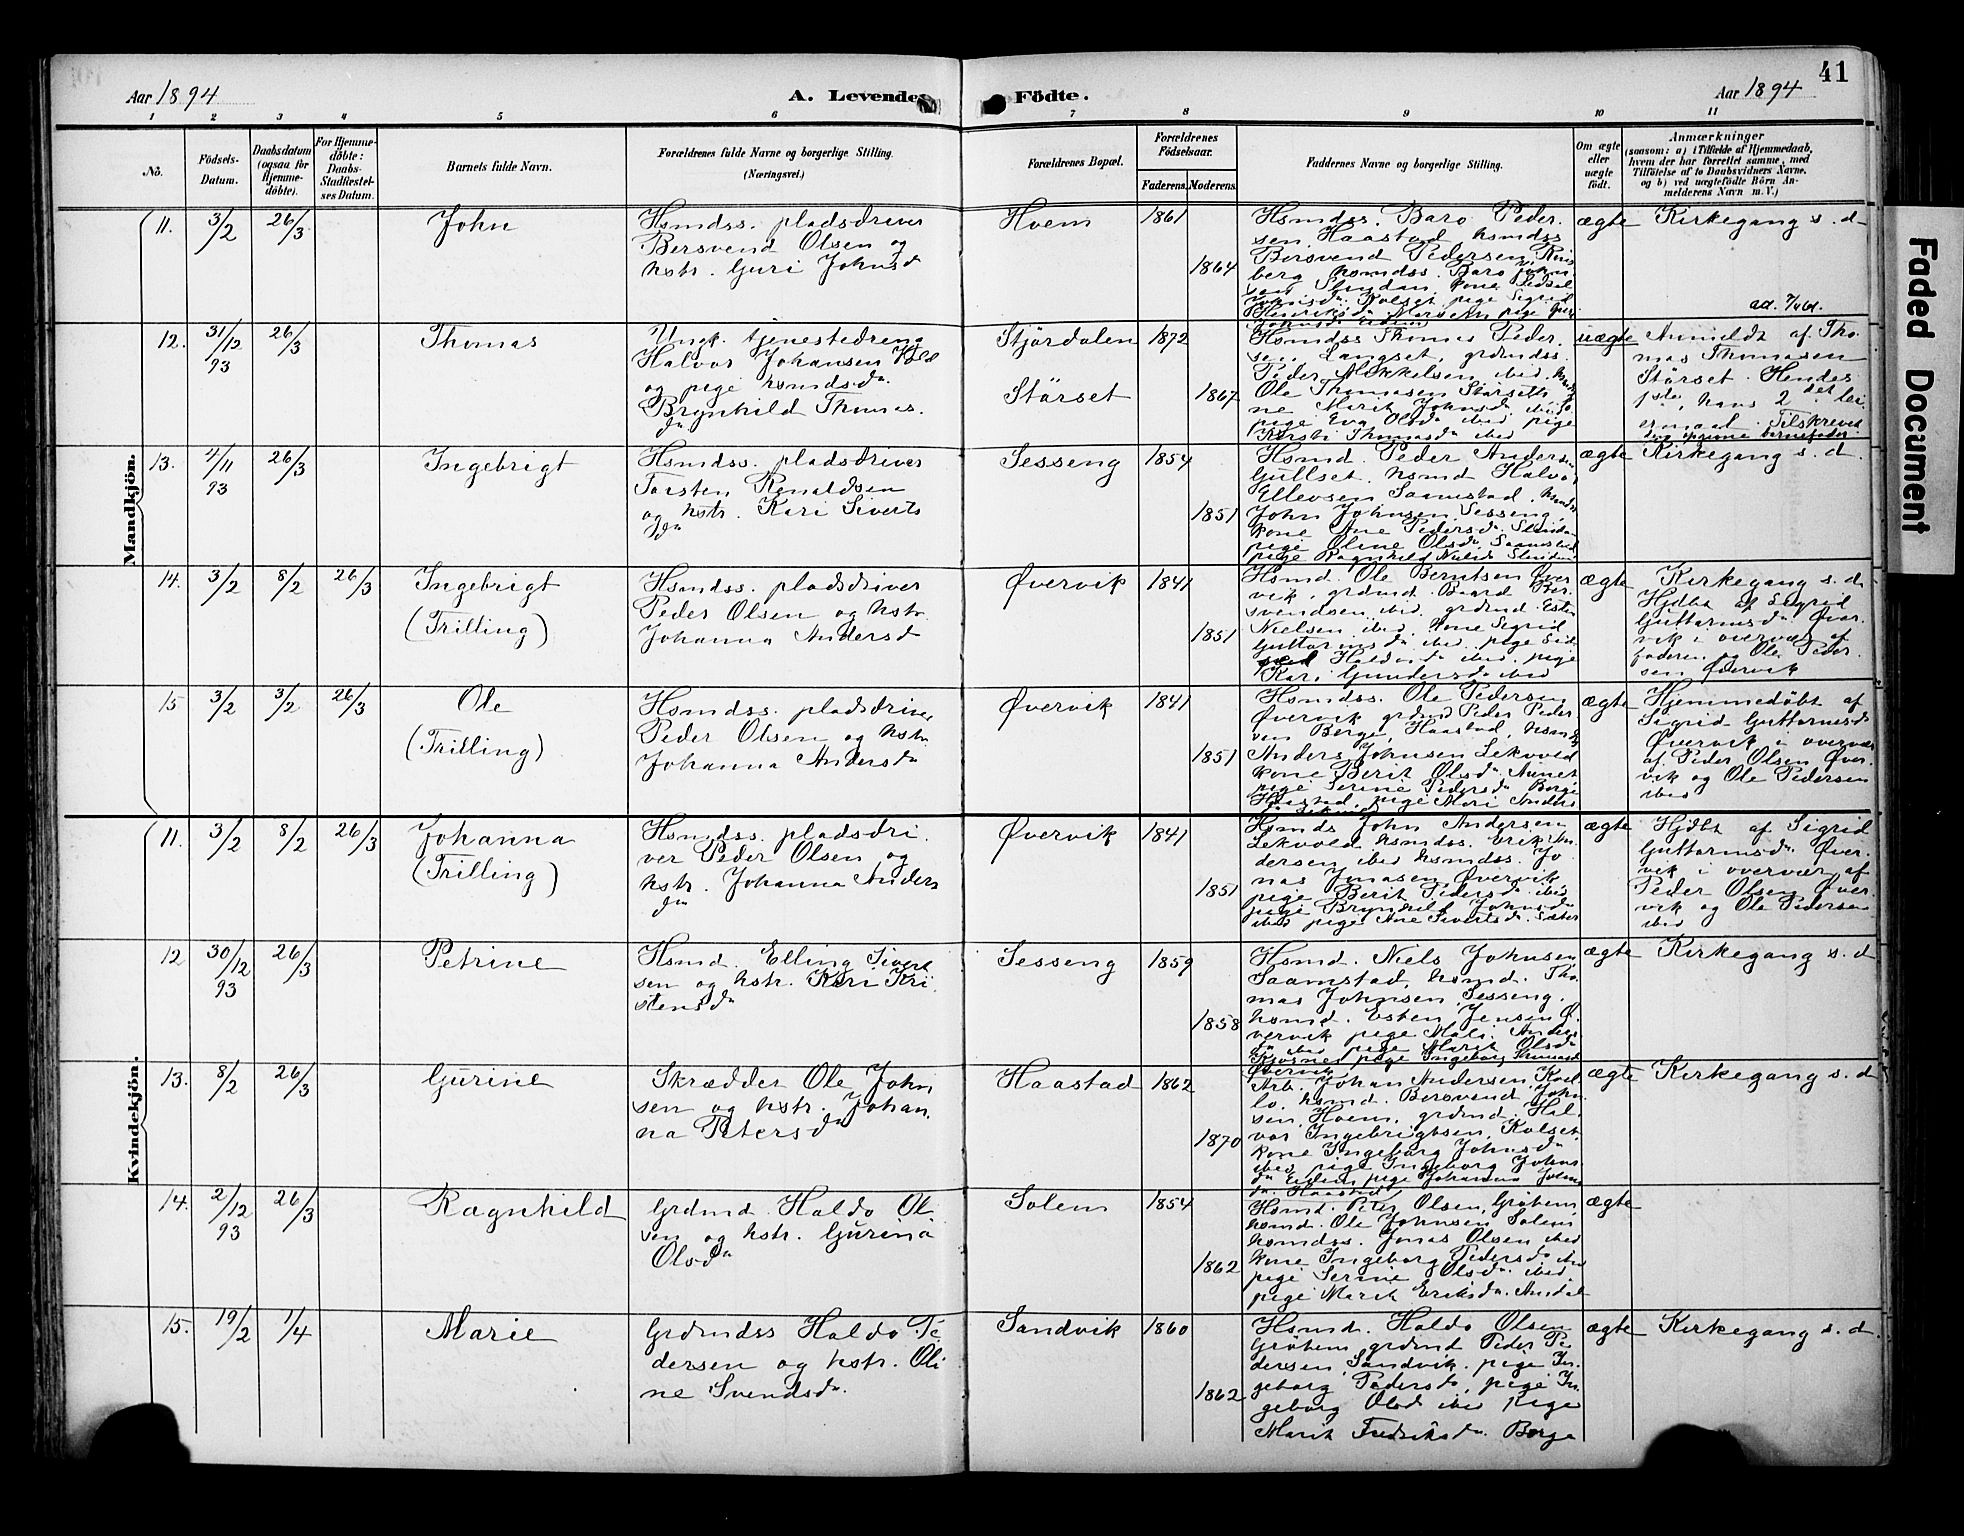 41
Aar 1894
A. Levende
Födte.
Aar 1894
1 2 3 4 5 6 7 8 9 10 11
No.
Födsels-
Datum.
Daabsdatum
(ogsaa for
Hjemme-
döbte).
For Hjemme-
döbte:
Daabs-
Stadfæstel-
ses Datum.
Barnets fulde Navn.
Forældrenes fulde Navne og borgerlige Stilling.
(Næringsvei.)
Forældrenes Bopæl.
Forældrenes
Födselsaar.
Faderens.
Moderens.
Faddernes Navne og borgerlige Stilling.
Om ægte
eller
uægte
födt.
Anmærkninger
(saasom: a) i Tilfælde af Hjemmedaab,
hvem der har forrettet samme, med
Tilföielse af to Daabsvidners Navne,
og b) ved uægtefödte Börn An-
melderens Navn m. V.)
Mandkjön.
11.
3/2
26/3
John
Hsmdss. pladsdriver
Bersvend Olsen og
hstr. Guri Johnsd
Hvem
1861
1864
Hsmdss. Baro Peder.
sen, Haastad, hsmdss
Bersvend Pedersen
berg hsmdss. Baro John
ægte
Kirkegang s. d.
12.
31/12
93
26/3
Thomas
Ungk. tjenestedreng
Halvor Johansen
og pige hsmdsda
Brynhild Thomas.
da
Stjördalen
Störset
1872
1867
Hsmdss Thomas Peder.
sen, Langset, grdmdss.
Peder Mikkelsen ibid.
Ole Thomasen Störset
ne Marit Johnsd
pige Eva Olsd ibid pige
Kirsti Thomasda ibid
uægte
Anmeldt af Tho
mas Thomasen
Störset. Hendes
1ste, hans 2det lei.
ermaal. Tilskrevet
13.
4/11
93
26/3
Ingebrigt
Hsmdss. pladsdriver
Torsten Renaldsen
og hstr. Kari Siverts
da
Sesseng
1854
1851
Hsmd. Peder Anders
Gullset, hsmd Halvor
Ellevsen Saamstad,
John Johnsen Sesseng,
kone Ane Pedersda
pige Oline Olsda Saamstad
pige Ragnhild
ægte
Kirkegang s. d.
14.
3/2
8/2
26/3
Ingebrigt
(Trilling)
Hsmdss. pladsdriver
Peder Olsen og hstr
Johanna Andersd
Øvervik
1841
1851
Hsmd. Ole Berntsen Øver
vik, grdmd. Baard Ber
svendsen ibid, grdmd. Esten
Nielsen ibid, kone Sigrid
Guttormsda ibid, pige
Haldosda ibid, pige
Kari Gundersda ibid
ægte
Kirkegang s. d.
Hjdbt af Sigrid
Guttormsda Øver.
vik i overvær af
faderen og Ole Peder.
sen Øvervik
15
3/2
3/2
26/3
Ole
(Trilling)
Hsmdss. pladsdriver
Peder Olsen og hstr.
Johanna Andersda
Øvervik
1841
1851
Hsmdss. Ole Pedersen
Øvervik grdmd Peder Peder
sen Borge, Haastad,
Anders Johnsen Lekvold
kone Berit Olsda Aunet
pige Serine Pedersda Borge
Haastad, pige Mari Anders
ægte
Hjemmedöbt af
Sigrid Guttormsda
Øvervik i overvær
af Peder Olsen Øver.
vik og Ole Pedersen
ibid
Kvindekjön.
11.
3/2
8/2
26/3
Johanna
(Trilling)
Hsmdss. pladsdri.
ver Peder Olsen og
hstr. Johanna Anders
da
Øvervik
1841
1851
Hsmds John Andersen
Lekvold hsmdss. Erik An
dersen ibid hsmdss. Jo
nas Jonasen Øvervik,
pige Berit Pedersda ibid,
pige Brynhild Johnsda
ibid pige Ane Sivertsda Sæter
ægte
Hjdbt af Sigrid
Guttormsda Øver.
vik i overvær af
Peder Olsen Øver
vik og Ole Pedersen
ibid
12
30/12
93
26/3
Petrine
Hsmd. Elling Sivert
sen og hstr. Kari Kri
stensda
Sesseng
1859
1858
Hsmd. Niels Johnsen
Saamstad, hsmd. Tho
mas Johnsen, Sesseng.
hsmd. Esten Jensen Ø.
vervik pige Mali Anders
da ibid pige Marit Olsda
pige Ingeborg
Øvervik
ægte
Kirkegang s. d
13.
8/2
26/3
Gurine
Skrædder Ole John
sen og hstr. Johan.
na Petersda
Haastad
1862
1870
Arb. Johan Andersen,
hsmd. Bersvend John
sen, Hvem, grdmd. Hal
vor Ingebrigtsen, Kolset,
kone Ingeborg Johnsda
ibid, pige Ingeborg Johns
da pige Johanna
da Haastad
ægte
Kirkegang s. d
14.
2/12
93
26/3
Ragnhild
Grdmd Haldo Ol
sen og hstr. Gurina
Olsda
Solem
1854
1862
Hsmd. Peter Olsen, Gröhem,
hsmd. Ole Johnsen Solem
hsmdss. Jonas Olsen ibid
kone Ingeborg Pedersda
pige Serine Olsda ibid,
pige Marit Eriksda
ægte
15.
19/2
1/4
Marie
Grdmdss Haldo Pe
dersen og hstr. Oli
ne Svendsda.
Sandvik
1860
1862
Hsmd. Haldo Olsen
Gröhem, grdmd Peder Pe
dersen, Sandvik, pige In.
geborg Pedersda, pige In.
geborg Olsd ibid Pige
Marit Fredriksda Borge
ægte
Kirkegang s. d.
Faded Document